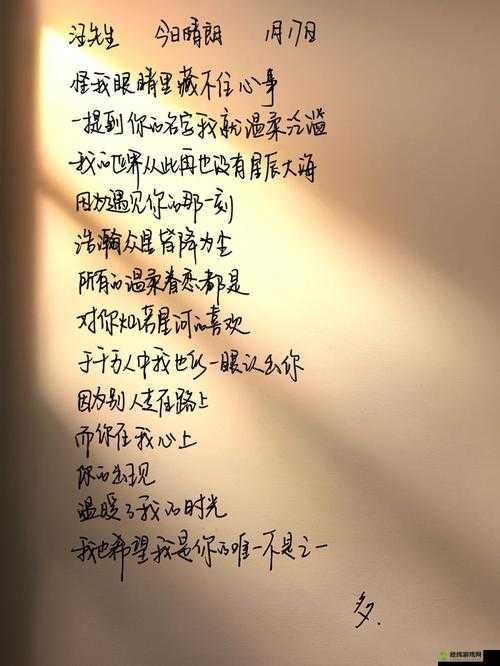 汪先生 今日晴朗 1月17日
怪我眼睛里藏不住心事
一提到你的名字我就温柔泛滥
我的世界从此再也没有星辰大海
因为遇见你的那一刻
浩瀚众星皆降为尘
所有的温柔眷恋都是
对你灿若星河的喜欢
于千万人中我也能一眼认出你
因为别人走在路上
而你在我心上
你的出现
温暖了我的时光
我也希望我是你的唯一不是之一
多.